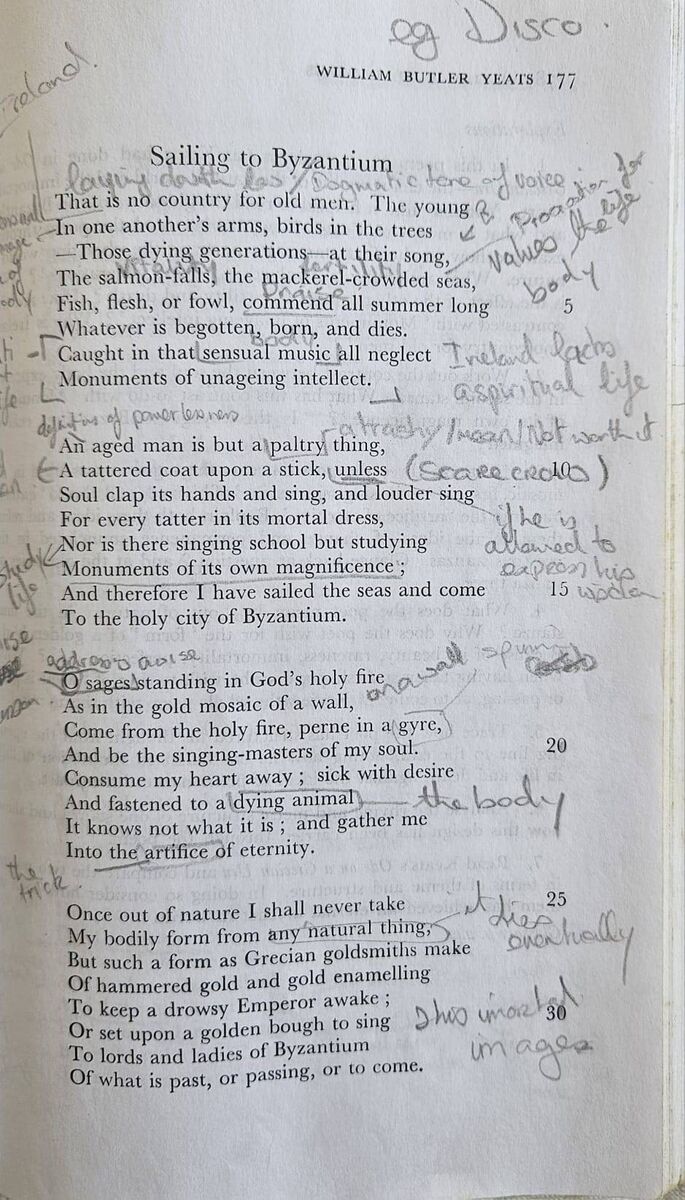 eg Disco.
WILLIAM BUTLER YEATS 177
Ireland.
Sailing to Byzantium
laying down law/Dogmatic tone of voice
That is no country for old men. The young
In one another's arms, birds in the trees
—Those dying generations—at their song,
values the life
body
vitality fertility
The salmon-falls, the mackerel-crowded seas,
praise
Fish, flesh, or fowl, commend all summer long 5
Whatever is begotten, born, and dies.
body
Caught in that sensual music all neglect
Ireland lacks
Monuments of unageing intellect.
a spiritual life
definitions of powerlessness
a trashy/mean/Not worth it
An aged man is but a paltry thing,
A tattered coat upon a stick, unless 10
(Scarecrows)
Soul clap its hands and sing, and louder sing
For every tatter in its mortal dress,
if he is
Nor is there singing school but studying
allowed to
study
life
Monuments of its own magnificence;
express his
And therefore I have sailed the seas and come 15
To the holy city of Byzantium.
address
O sages standing in God's holy fire
on a wall spun
As in the gold mosaic of a wall,
Come from the holy fire, perne in a gyre,
And be the singing-masters of my soul. 20
Consume my heart away; sick with desire
And fastened to a dying animal
the body
It knows not what it is; and gather me
Into the artifice of eternity.
the
trick
Once out of nature I shall never take 25
My bodily form from any natural thing,
it dies
eventually
But such a form as Grecian goldsmiths make
Of hammered gold and gold enamelling
To keep a drowsy Emperor awake;
Or set upon a golden bough to sing 30
images
To lords and ladies of Byzantium
Of what is past, or passing, or to come.